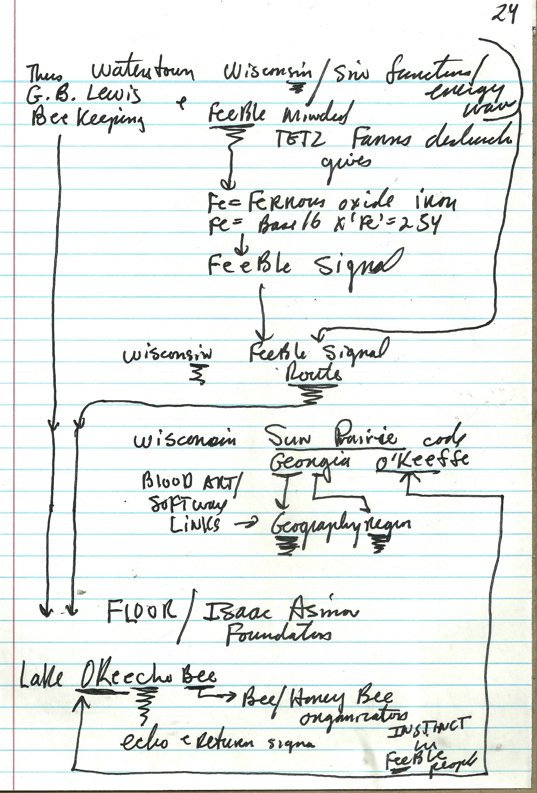 24
Thus Watertown Wisconsin / Sin function/
G.B. Lewis energy
Bee Keeping & wave
FeeBle Minded
TETZ Farms
gives
Fe = Ferrous oxide iron
Fe = Base 16 X'Fe' = 254
FeeBle Signal
Wisconsin FeeBle Signal
Route
Wisconsin Sun Prairie code
Georgia O'Keeffe
BLOOD ART/
SOFTWARE
LINKS → Geography region
FLOOR / Isaac Asimov
Foundations
Lake OKeechoBee
Bee/Honey Bee
organizations
echo & Return signa
INSTINCT
in
FeeBle
people